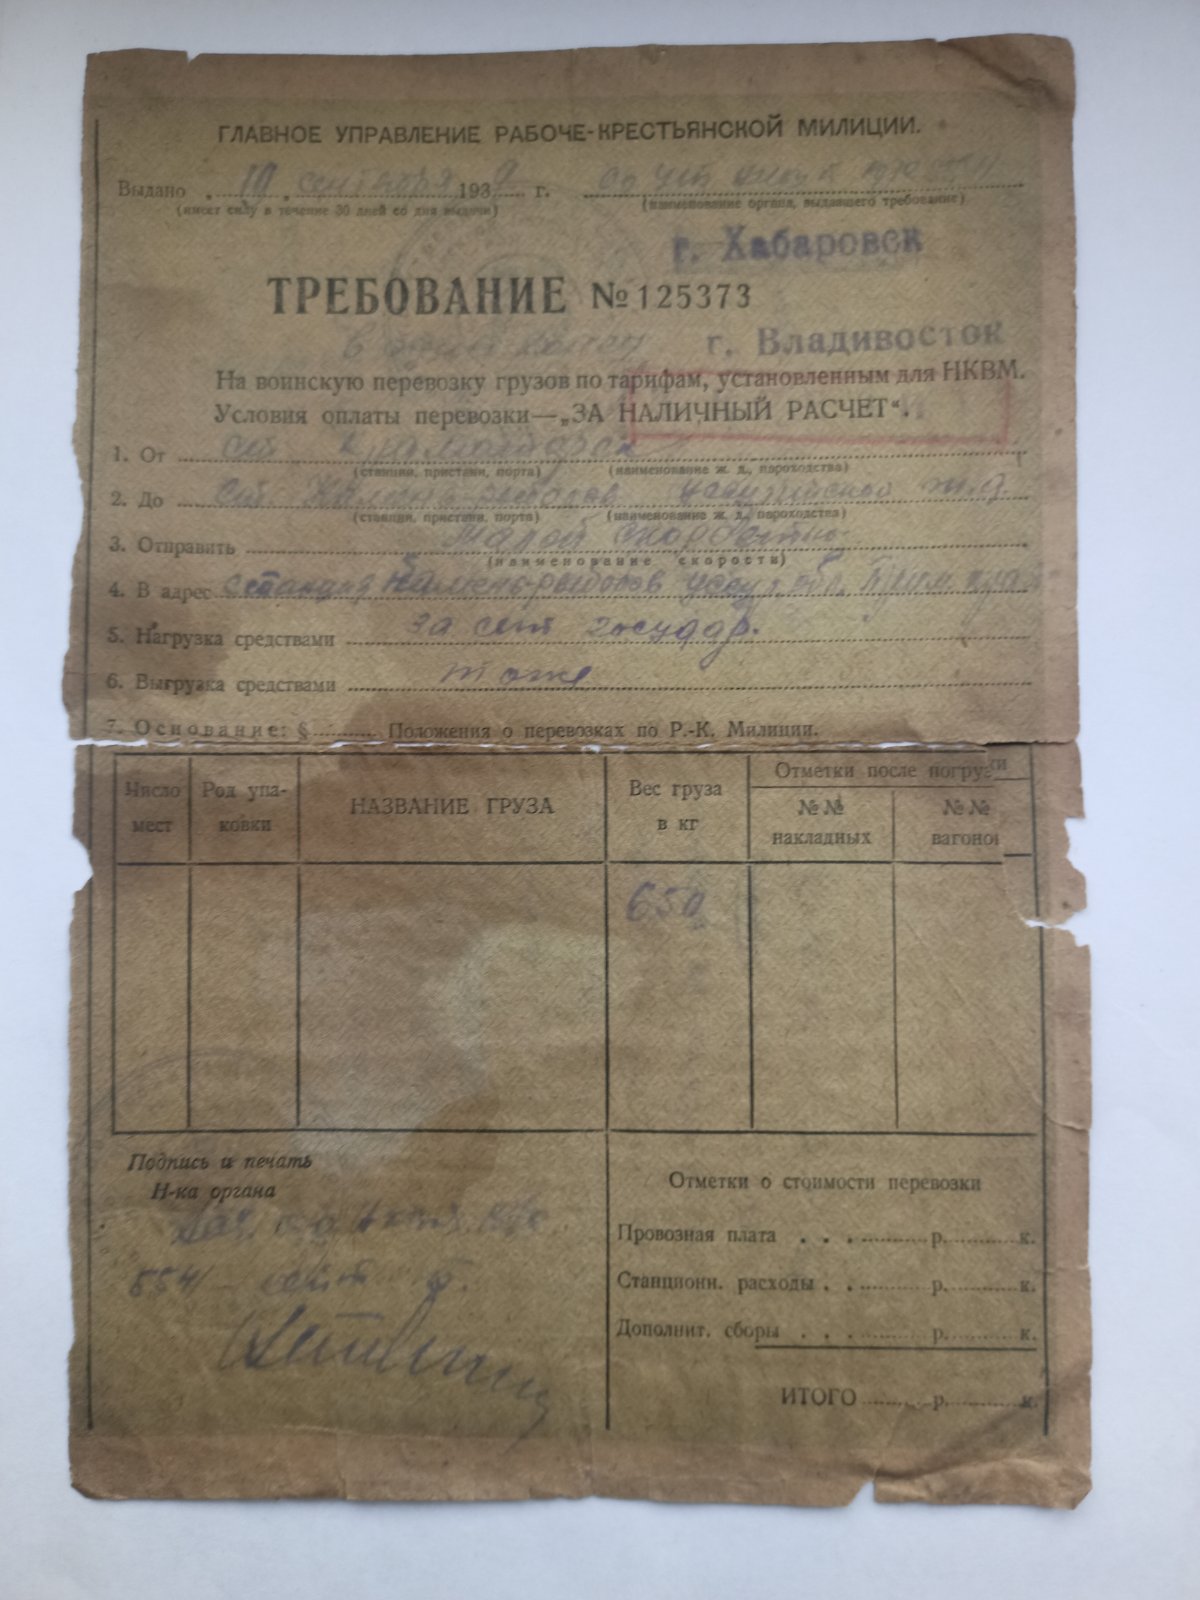 ГЛАВНОЕ УПРАВЛЕНИЕ РАБОЧЕ-КРЕСТЬЯНСКОЙ МИЛИЦИИ.
Выдано „10„ сентября 1939 г.
(имеет силу в течение 30 дней со дня выдачи) (наименование органа, выдавшего требование)
г. Хабаровск
ТРЕБОВАНИЕ № 125373
г. Владивосток
На воинскую перевозку грузов по тарифам, установленным для НКВМ.
Условия оплаты перевозки—„ЗА НАЛИЧНЫЙ РАСЧЕТ“.
1. От ст.
(станции, пристани, порта) (наименование ж. д., пароходства)
2. До ст. Камень-рыболов Уссурийской ж.д.
(станции, пристани, порта) (наименование ж. д., пароходства)
3. Отправить малой скоростью
(наименование скорости)
4. В адрес станция Камень-рыболов Уссур. обл. Прим. края
5. Нагрузка средствами за счет государ.
6. Выгрузка средствами тоже
7. Основание: § Положения о перевозках по Р.-К. Милиции.
Число мест
Род упаковки
НАЗВАНИЕ ГРУЗА
Вес груза в кг
Отметки после погрузки
№№ накладных
№№ вагонов
650
Подпись и печать
Н-ка органа
Отметки о стоимости перевозки
Провозная плата . . . р. к.
Станционн. расходы . . р. к.
Дополнит. сборы . . . р. к.
ИТОГО р. к.